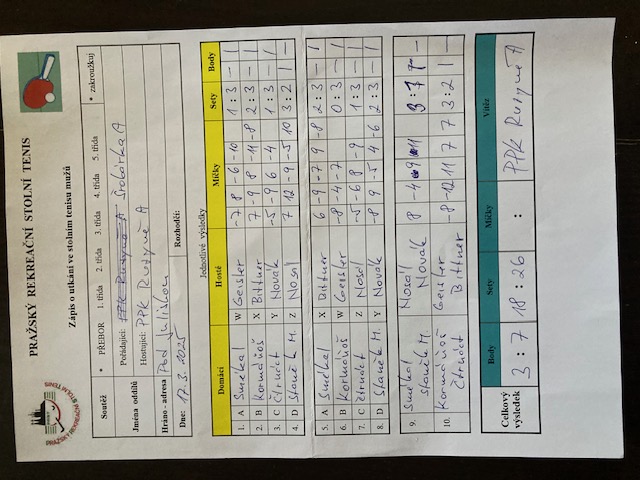 PRAŽSKÝ REKREAČNÍ STOLNÍ TENIS
PRAŽSKÝ REKREAČNÍ STOLNÍ TENIS
Zápis o utkání ve stolním tenisu mužů
Soutěž * PŘEBOR 1. třída 2. třída 3. třída 4. třída 5. třída * zakroužkuj
Jména oddílů Pořádající: PPK Ruzyně A Šrobárka A
Hostující: PPK Ruzyně A
Hráno - adresa Pod Juliskou
Dne: 17.3.2025 Rozhodčí:
Jednotlivé výsledky
Domácí Hosté Míčky Sety Body
1. A Smékal W Geisler -7 8 -6 -10 1 : 3 – 1
2. B Kormaňoš X Bittner 7 -9 8 -11 -8 2 : 3 – 1
3. C Čtrnáct Y Novák -5 -9 6 -4 1 : 3 – 1
4. D Staněk M. Z Nosál 7 12 -9 -5 10 3 : 2 1 –
5. A Smékal X Bittner 6 -9 -7 9 -8 2 : 3 – 1
6. B Kormaňoš W Geisler -8 -4 -7 0 : 3 – 1
7. C Čtrnáct Z Nosál -5 -6 8 -9 1 : 3 – 1
8. D Staněk M. Y Novák -8 9 -5 4 -6 2 : 3 – 1
9. Smékal Nosál 8 -4 3 : 1 –
Staněk M. Novák
10. Kormaňoš Geisler -8 -12 11 7 7 3 : 2 1 –
Čtrnáct Bittner
Celkový výsledek Body Sety Míčky Vítěz
3 : 7 18 : 26 : PPK Ruzyně A